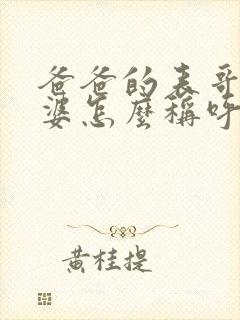 爸爸的表哥
婆怎麼稱呼
黃桂提